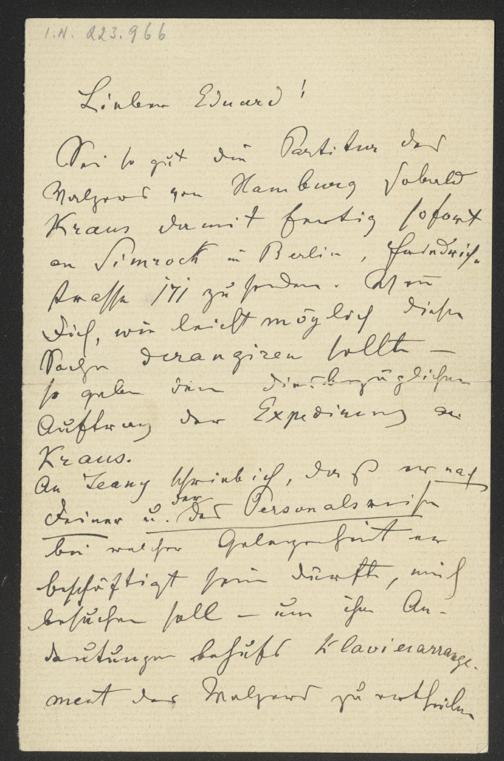 I.N. 223.966
Lieber Eduard!
Sei so gut die Partitur des
Walzers von Hamburg sobald
Kraus damit fertig sofort
an Simrock in Berlin, Friedrich-
strasse 171 zu senden. Wenn
Dich, wie leicht möglich diese
Sache derangiren sollte –
so gebe den diesbezüglichen
Auftrag der Expedirung an
Kraus.
An Jeany schrieb ich, daß er nach
Deiner u. der des Personals
bei welcher Gelegenheit er
beschäftigt sein dürfte, mich
besuchen soll – um ihm An-
deutungen behufs Klavierarrange-
ment des Walzers zu ertheilen